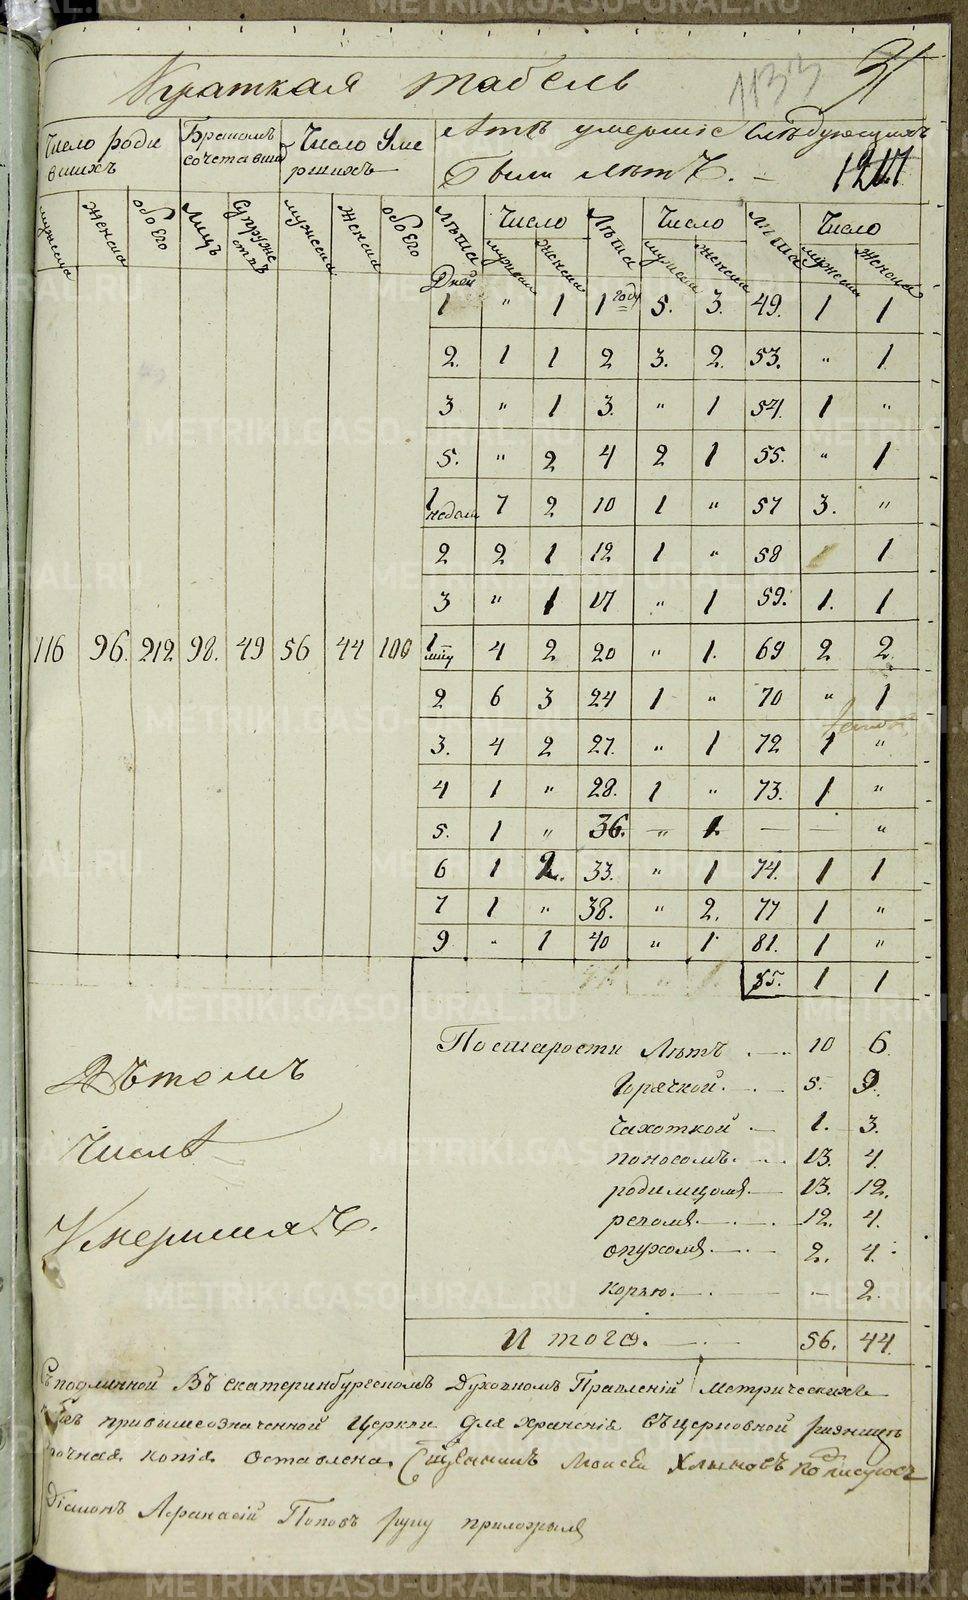 METRIKI.GASO-URAL.RU
Краткая табель
1133
31
Число роди вшихъ | Бракомъ сочетавших | Число Уме ршихъ | Лѣтъ умершiе слѣдующихъ
были лѣтъ. — 1217
мужеска | женска | обоего | Лицъ | Супружествъ | мужеска | женска | обоего | Лѣта | Число | Лѣта | Число | Лѣта | Число
мужеска | женска | мужеска | женска | мужеска | женска
Дней
1 | " | 1 | 1 году | 5. | 3. | 49. | 1 | 1
2. | 1 | 1 | 2 | 3. | 2. | 53. | " | 1
3 | " | 1 | 3. | " | 1 | 54. | 1 | "
5. | " | 2 | 4 | 2 | 1 | 55. | " | 1
1 недели | 7 | 2 | 10 | 1 | " | 57 | 3. | "
2 | 2 | 1 | 12 | 1 | " | 58 | 1
3 | " | 1 | 17 | " | 1 | 59. | 1. | 1
116 | 96. | 212 | 98. | 49 | 56 | 44 | 100 | 1 мцу | 4 | 2 | 20 | " | 1. | 69 | 2 | 2
2 | 6 | 3 | 24 | 1 | " | 70 | " | 1
3. | 4 | 2 | 27. | " | 1 | 72 | 1 | "
4 | 1 | " | 28. | 1 | " | 73. | 1 | "
5. | 1 | " | 36. | " | 1. | — | — | "
6 | 1 | 2. | 33. | " | 1 | 74. | 1 | 1
7 | 1 | " | 38. | " | 2. | 77 | 1 | "
9 | " | 1 | 40 | " | 1. | 81. | 1 | "
85. | 1 | 1
Вѣтомъ
Числѣ
Умершихъ.
По старости Лѣтъ | 10 | 6.
Горячкой. | 5. | 9.
Чахоткой | 1. | 3.
поносомъ. | 13. | 4.
родимцомъ. | 13. | 12.
резомъ. | 12. | 4.
опухомъ | 2. | 4.
корью. | — | 2.
Итого. | 56. | 44.
Съ подлинной Въ Екатеринбургскомъ Духовномъ Правленiй Метрическихъ
привышеозначенной Церкви для храненiя Въ церковной ризницѣ
точная копiя Оставлена, Священникъ Моисей Хлыновъ подписуюсь
Дiаконъ Афанасiй Поповъ руку приложилъ